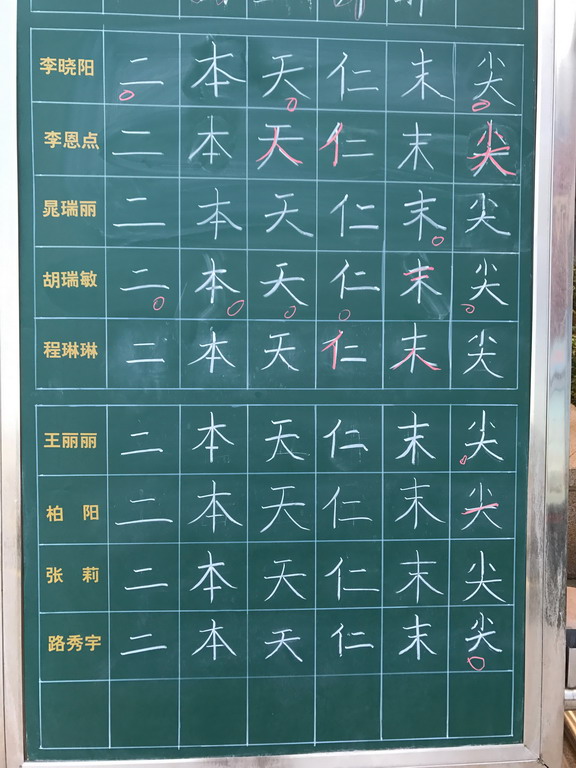 李晓阳 二 本 天 仁 末 尖
李恩点 二 本 天 仁 末 尖
晁瑞丽 二 本 天 仁 末 尖
胡瑞敏 二 本 天 仁 末 尖
程琳琳 二 本 天 仁 末 尖
王丽丽 二 本 天 仁 末 尖
柏 阳 二 本 天 仁 末 尖
张 莉 二 本 天 仁 末 尖
路秀宇 二 本 天 仁 末 尖